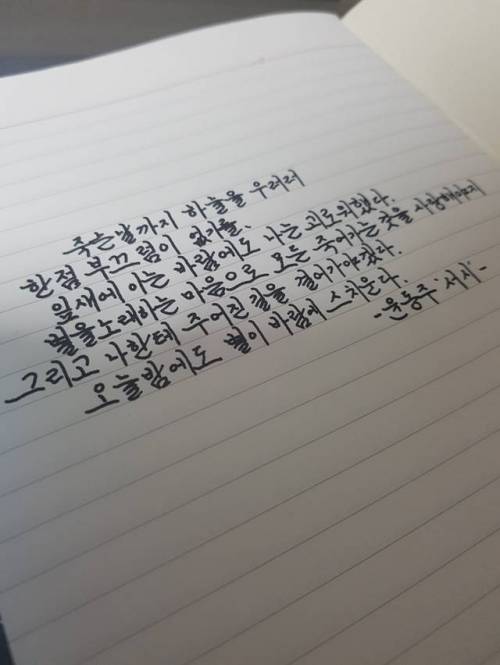 죽는날까지 하늘을 우러러
한점 부끄럼이 없기를.
잎새에 이는 바람에도 나는 괴로워했다.
별을노래하는 마음으로 모든 죽어가는 것을 사랑해야지
그리고 나한테 주어진길을 걸어가야겠다.
오늘밤에도 별이 바람에 스치운다.
-윤동주 '서시'-